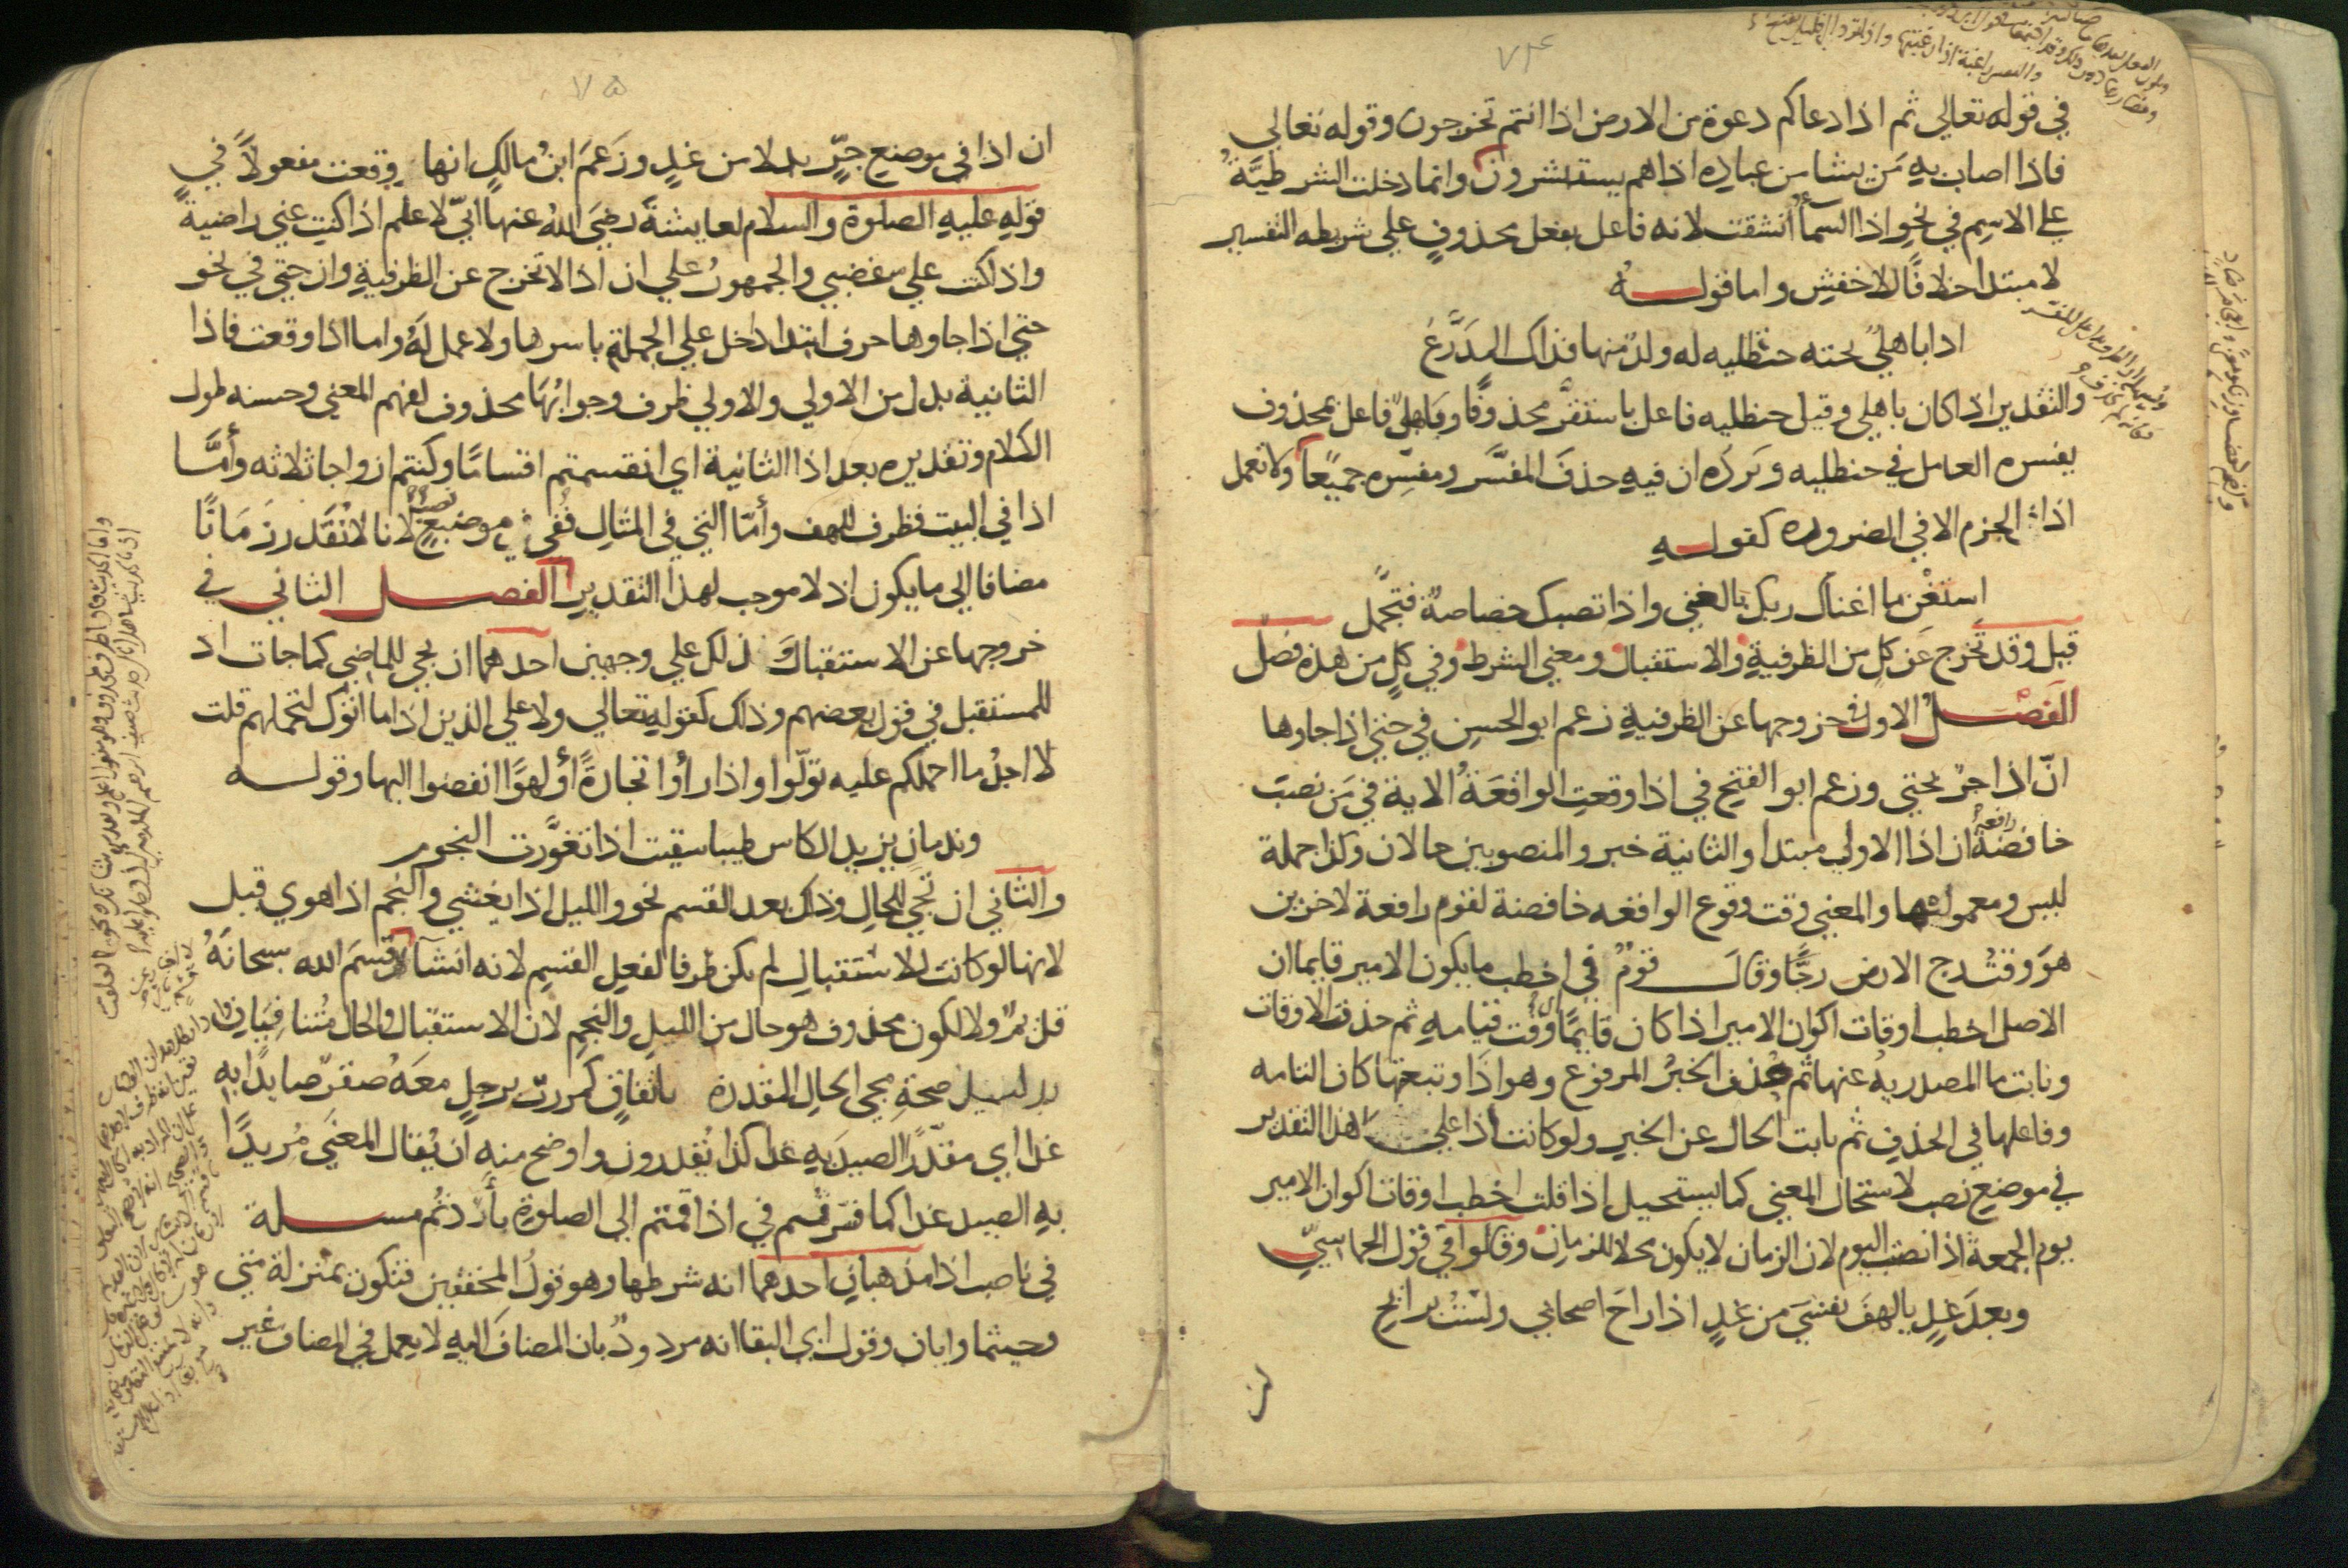 ٧٤
في قوله تعالي ثم اذا دعاكم دعوة من الارض اذا انتم تخرجون وقوله تعالي
فاذا اصاب به من يشا من عباده اذا هم يستبشرون وانما دخلت الشرطيَّةُ
علي الاسم في نحو اذا السمأ انشقت لانه فاعل بفعل محذوفٍ علي شريطه التفسير
لا مبتدا خلافًا للاخفش واما قولــــه
اذا باهليٌ تحته حنظليه له ولدٌ منها فذاك المذَرَّعُ
والتقدير اذا كان باهلي وقيل حنظليه فاعل باستقرَّ محذوفًا وبَاهليٌ فاعل بمحذوف
يفسره العامل في حنظليه ويَردّه ان فيه حذفَ المفسَّر ومفسِّره جميعًا ولا تعمل
اذا الجزم الا في الضروره كقولــــهِ
استغْنِ ما اغناك ربك بالغني واذا تصبك خصاصةٌ فتحَمل
قيل وقد تخرج عن كلٍ من الظرفيةِ والاستقبال ومعني الشرط وفي كلٍ من هذه فصلٌ
الفَصْــلُ الاول في خروجها عن الظرفيةِ زعم ابو الحسن في حتي اذا جاوها
انّ اذا جرٌ بحتي وزعم ابو الفتح في اذا وقعتِ الواقعَةُ الاية في مَن نصبَ
خافضةً رافعةً ان اذا الاولي مبتدا والثانية خبر والمنصوبين حالان وكذا جملة
ليس ومعموليها والمعني وقت وقوع الواقعه خافضة لقوم رافعة لاخرين
هوَ وقتُ رج الارض رجًّا وقالَ قومٌ في اخطب ما يكون الامير قايما ان
الاصل اخطب اوقات اكوان الامير اذا كان قايمًا اي وقت قيامهِ ثم حذفت الاوقات
ونابت ما المصدريهُ عنها ثم حذف الخبرُ المرفوع وهو اذا وتبعتها كان التامه
وفاعلها في الحذفِ ثم نابت الحال عن الخبرِ ولو كانت اذا علي هذا التقدير
في موضع نصب لاستحال المعني كما يستحيل اذا قلت اخطب اوقات اكوان الامير
يوم الجمعة اذا نصبت اليوم لان الزمان لا يكون محلا للزمان وقالوا في قول الحماسيِّ
وبعدَ غدٍ يا لهفَ نفسيَ من غدٍ اذا راحَ اصحابي ولستُ برايحِ
٧٥
ان اذا في موضع جرٍّ بدلا من غدٍ وزعَمَ ابنُ مالكٍ انها وقعت مفعولاً في
قولهِ عليهِ الصلوة والسلام لعايشةَ رضيَ اللهُ عنها انيّ لاعلم اذا كنتِ عني راضيةً
واذا كنت علي غضبي والجمهورُ علي ان اذا لا تخرج عن الظرفيةِ وان حتي في نحو
حتي اذا جاوها حرف ابتدا دخل علي الجملةِ باسرها ولا عمل لَهُ واما اذا وقعت فاذا
الثانية بدل من الاولي والاولي ظرف وجوابُهَا محذوف لفهم المعني وحسنه طول
الكلام وتقديره بعد اذا الثانية اي انقسمتم اقسامًا وكنتم ازواجا ثلاثه وأمَّا
اذا في البيت فظرف للهف وأمّا التي في المثالِ ففي موضعِ نصبٍ لانا لا نُقَدر زمَانًا
مضافا الي ما يكون اذ لا موجب لهذا التقديرِ الفصــــل الثاني في
خروجها عن الاستقبال وَ ذلك علي وجهين احدهما ان تجي للماضي كما جات اذ
للمستقبل في قول بعضهم وذلك كقولهِ تعالي ولا علي الذين اذا ما اتوك لتحملهم قلت
لا اجدُ ما احملكم عليه تولّوا واذا رأوا تجارةً أو لهوًا انفضوا اليها وقولــــه
وندمانٍ يزيد الكاس طيبا سقيت اذا تغوَّرت النجوم
والثاني ان تجي للحالِ وذلك بعد القسم نحو والليل اذا يغشي والنجم اذا هوي قيل
لانها لو كانت للاستقبالِ لم يكن ظرفا لفعلِ القسمِ لانه انشآ لا قسمَ الله سبحانَهُ
قديمٌ ولا لكون محذوف هو حال من الليلِ والنجمِ لان الاستقبال والحال مُتنافيَانِ
بدليل صحةِ مجي الحالِ المقدرة باتفاقٍ كمررت برجلٍ معهُ صقرٌ صايدًا بهِ
غدا اي مقدّرًا الصيدَ بهِ غدا كذا يُقدرون واوضح منهِ ان يُقال المعنَي مُريدًا
بهِ الصيد غدا كما فسّر قسم في اذا قمتم الي الصلوةِ بأردتُم مســـلة
في ناصب اذا مذهبانِ احدهما انه شرطها وهو قولُ المحققين فتكون بمنزلة متي
وحيثما وايان وقول ابي البقا انه مردودٌ بان المضافَ اليهِ لا يعمل في المضاف غير